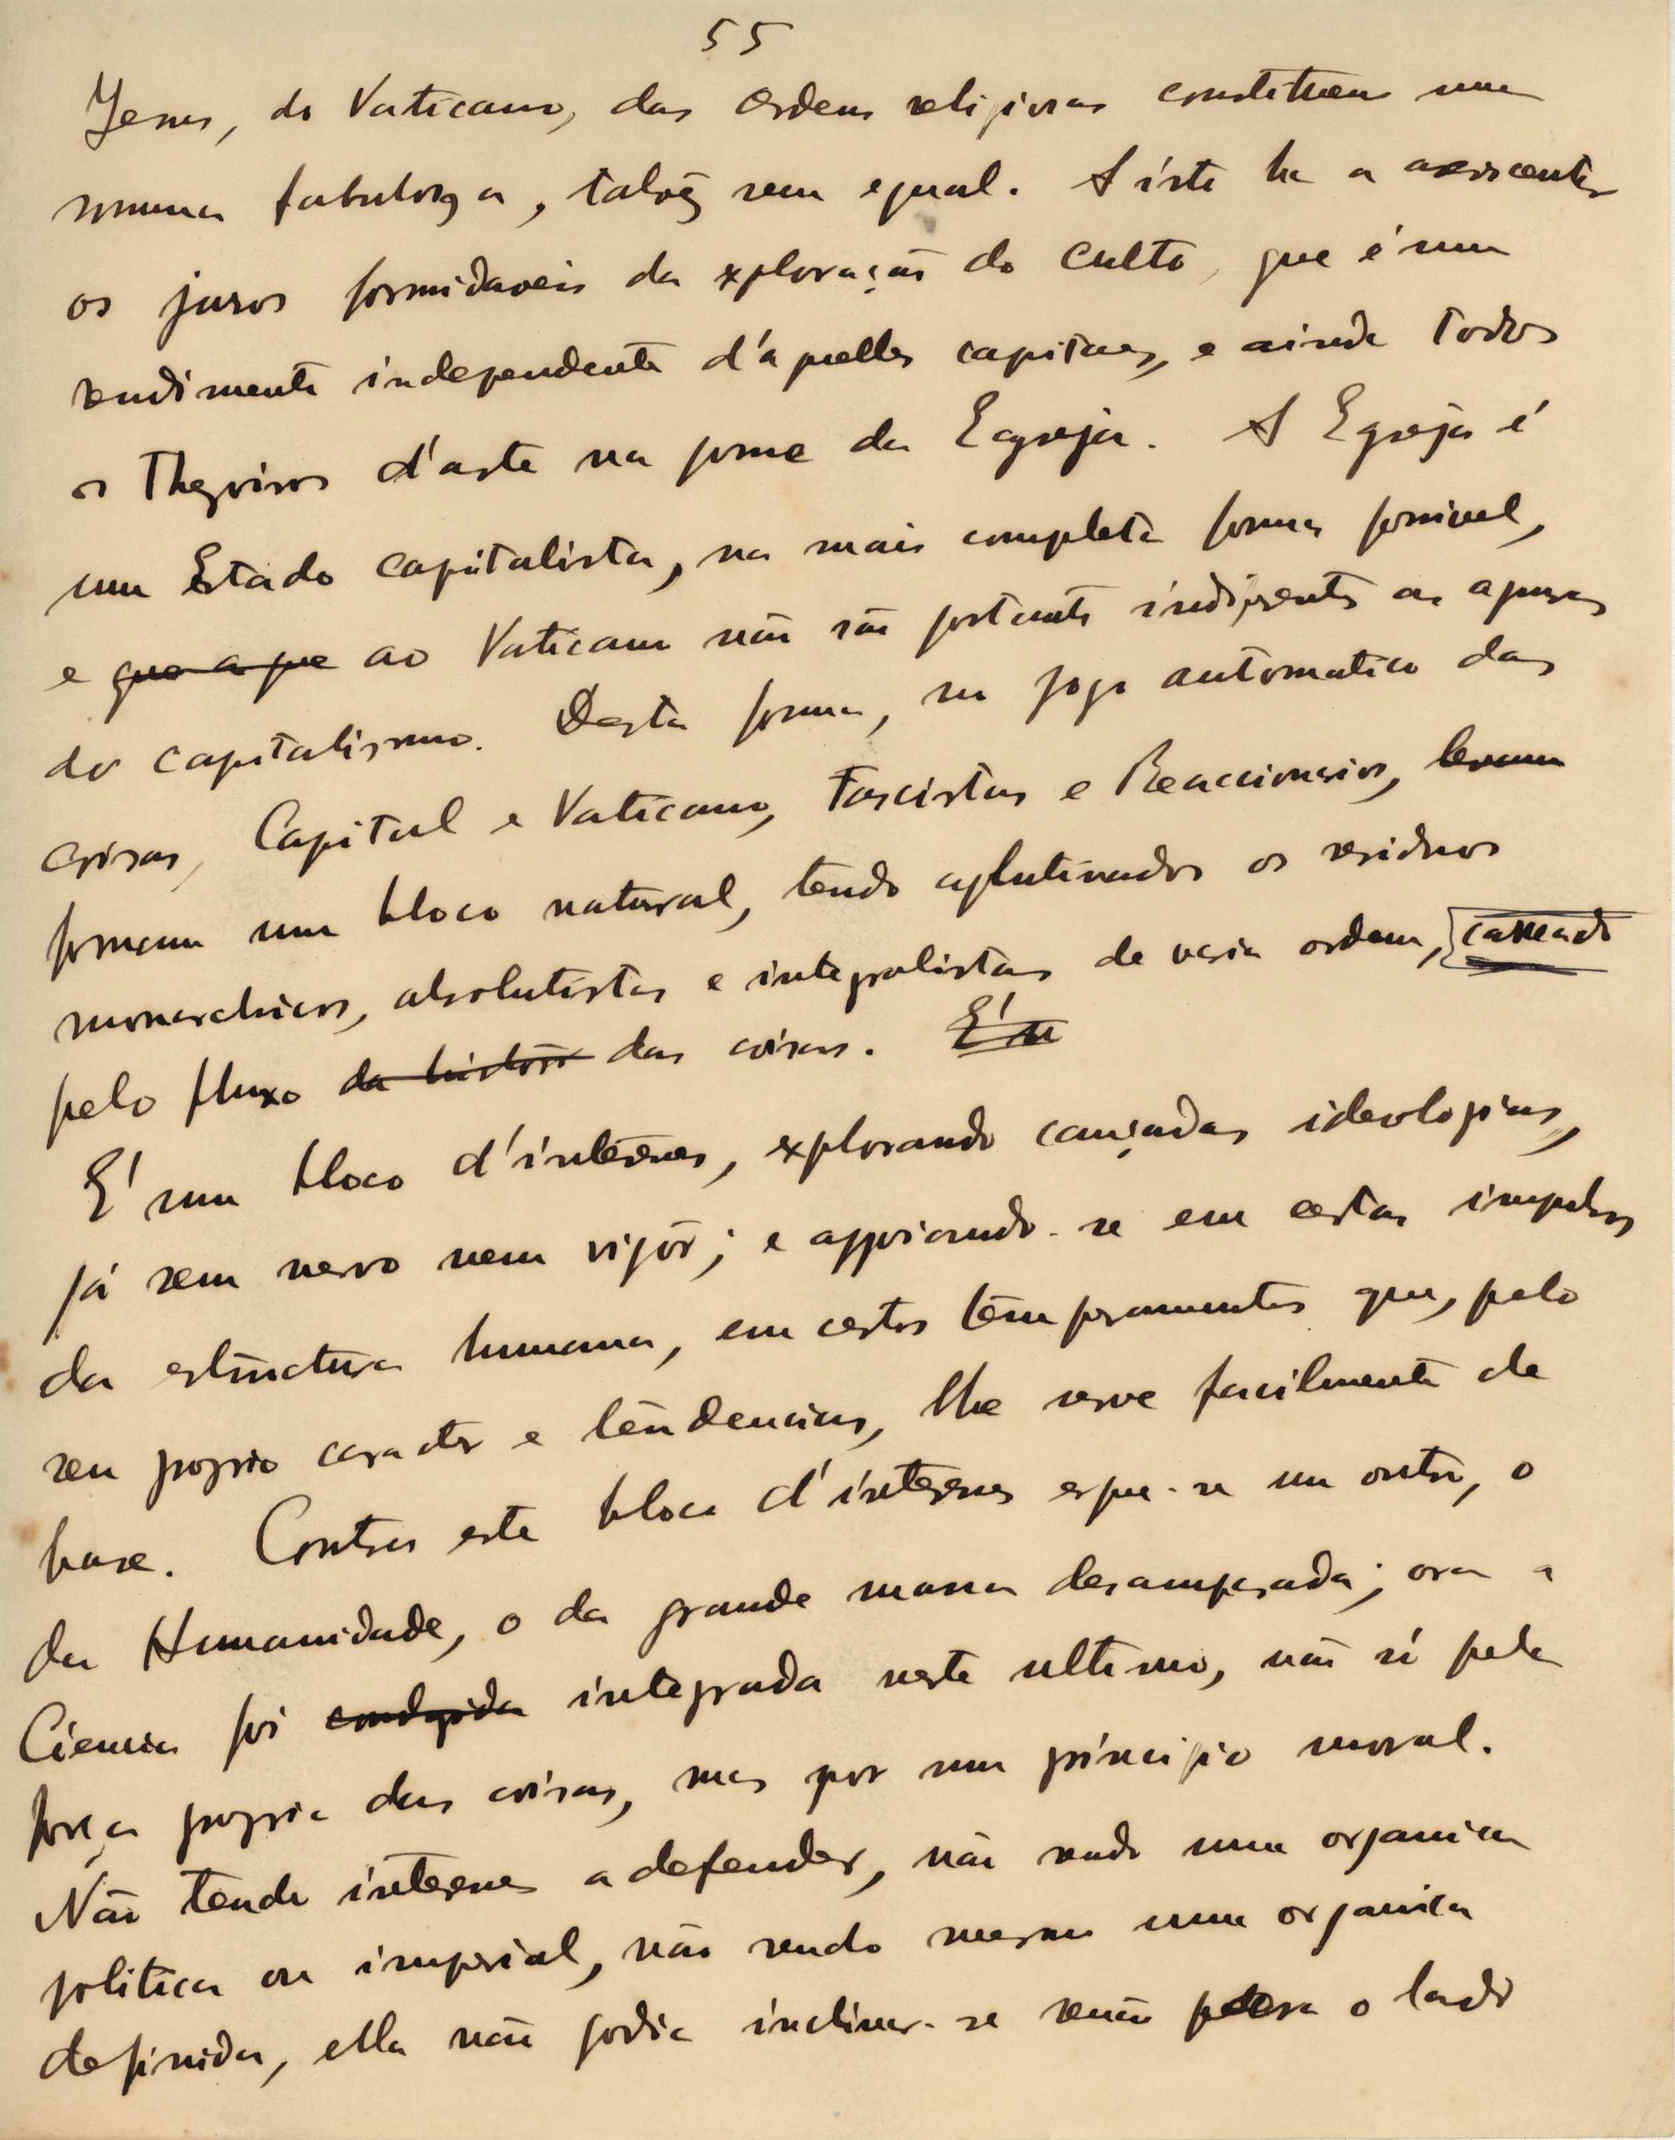 55
Jesus, do Vaticano, das Ordens religiosas constituem uma
somma fabulosa, talvez sem egual. A isto ha a acrescentar
os juros formidaveis da exploração do culto, que é um
rendimento independente d'aquelles capitaes, e ainda todos
os Thezoiros d'arte na posse da Egreja. A Egreja é
um Estado capitalista, na mais completa forma possivel,
e que a que ao Vaticano não são portanto indiferentes os apuros
do capitalismo. Desta forma, no jogo automatico das
coisas, Capital e Vaticano, Fascistas e Reaccionarios, levam
formam um bloco natural, tendo aglutinados os residuos
monarchicos, absolutistas e integralistas de varia ordem,
pelo fluxo da histori das coisas. É u
É um bloco d'interesses, explorando cançadas ideologias,
já sem nervo nem vigôr; e appoiando-se em certos impulsos
da estructura humana, em certos temperamentos que, pelo
seu proprio caracter e tendencias, lhe serve facilmente de
base. Contra este bloco d'interesses ergue-se um outro, o
da Humanidade, o da grande massa desamparada; ora a
Ciencia foi integrada neste ultimo, não só pela
força propria das coisas, mas por um principio moral.
Não tendo interesses a defender, não sendo uma organica
politica ou imperial, não sendo mesmo uma organica
definida, ella não podia inclinar-se senão para o lado